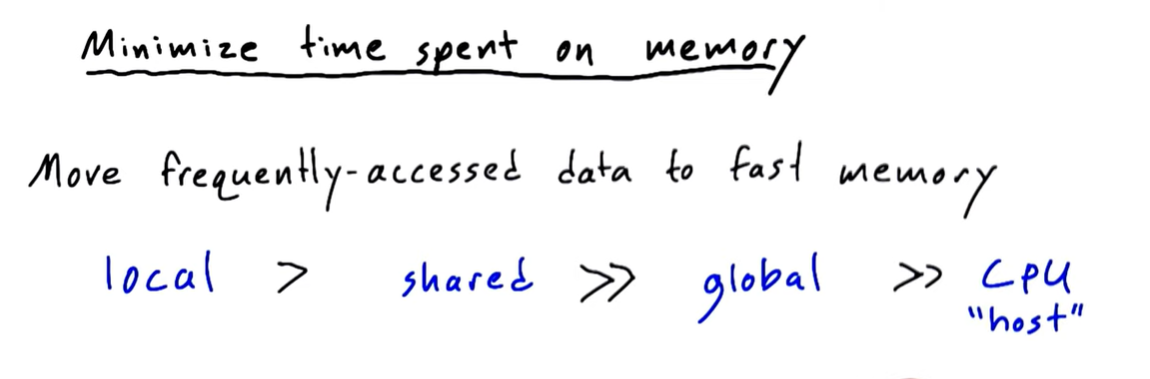 Minimize time spent on memory
Move frequently-accessed data to fast memory
local > shared >> global >> CPU
"host"